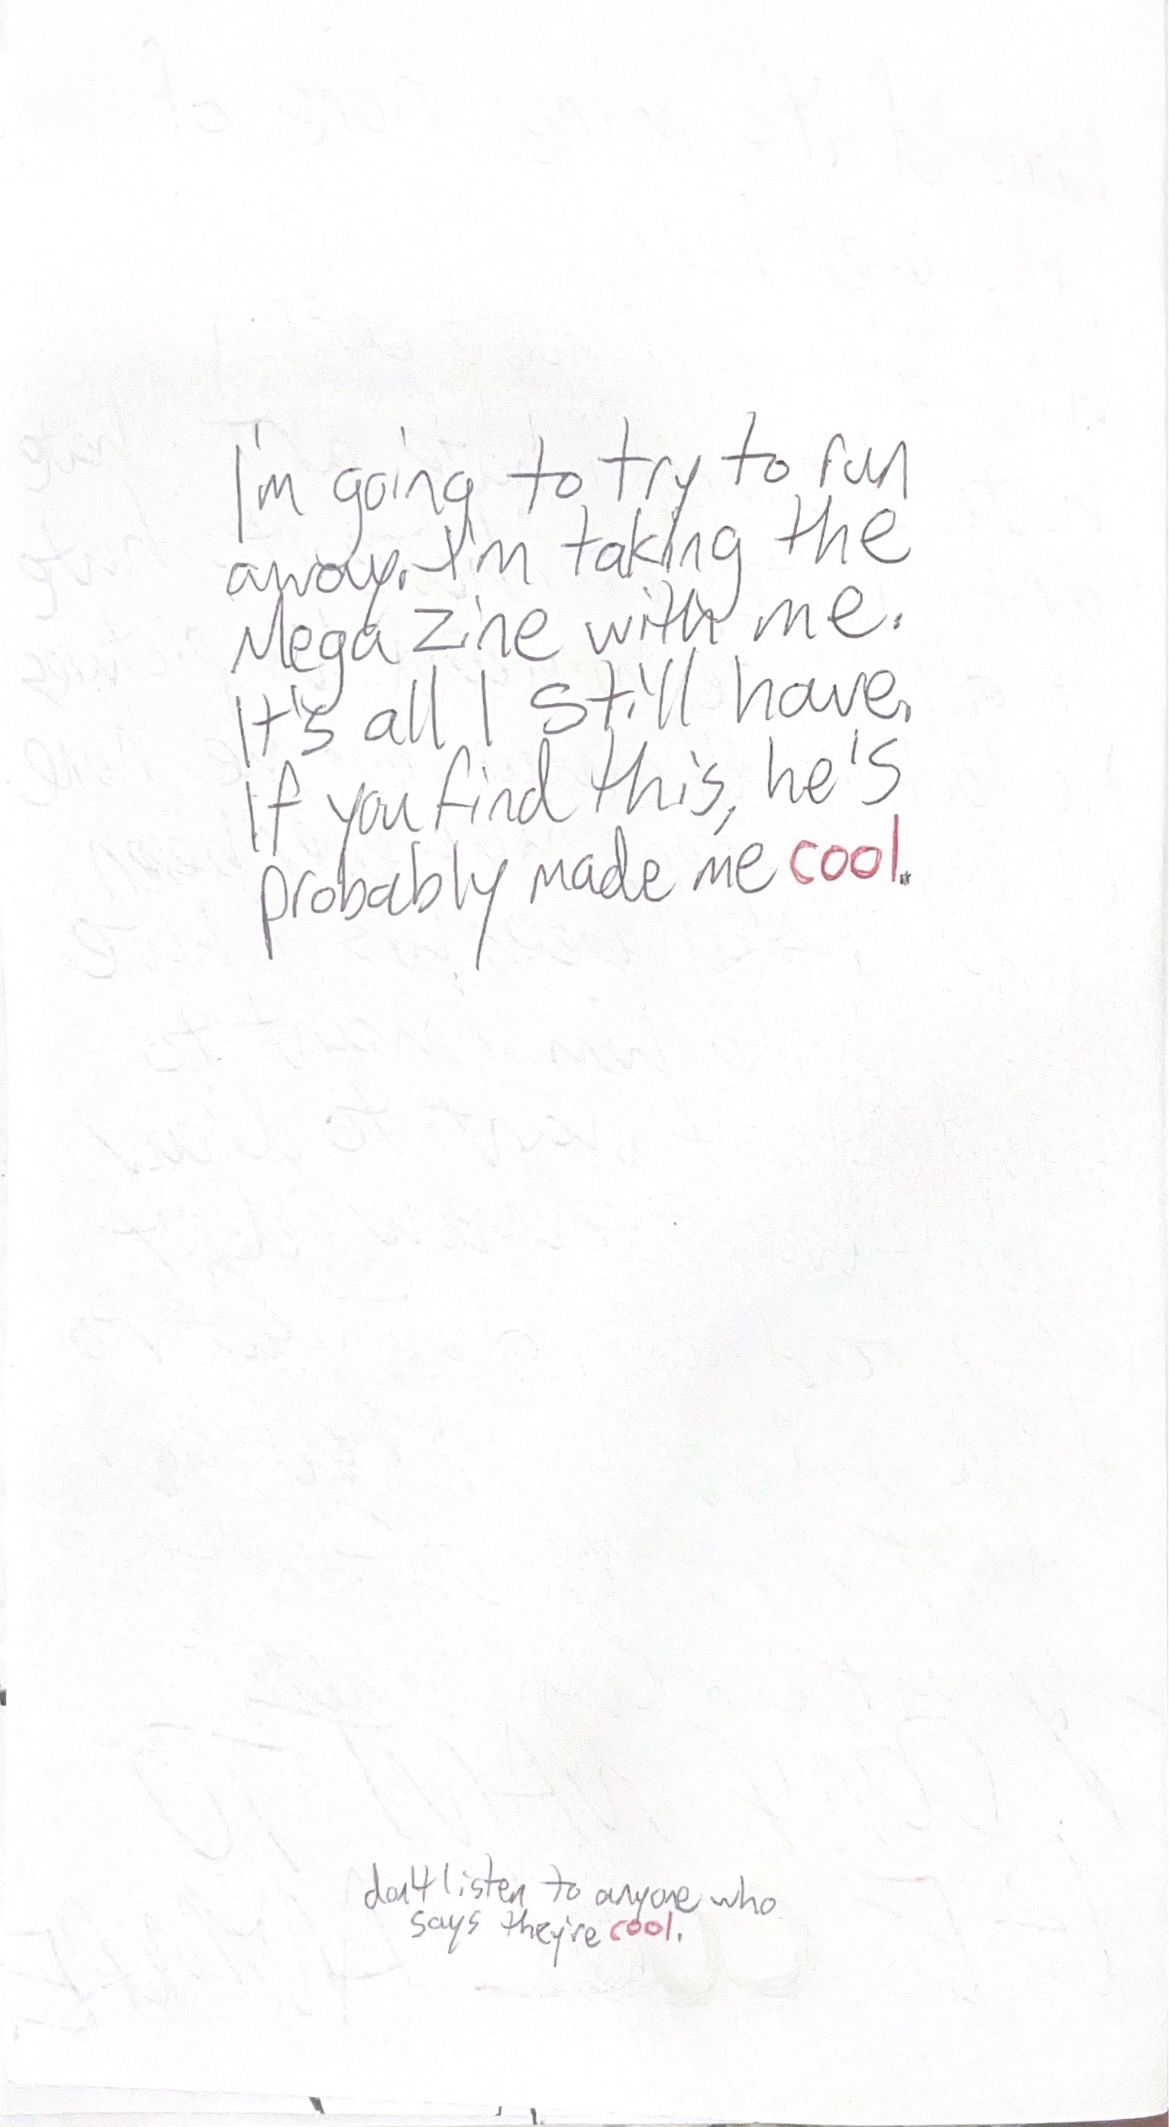 I'm going to try to run
away. I'm taking the
Mega Zine with me.
It's all I still have.
If you find this, he's
probably made me cool.
don't listen to anyone who
says they're cool.